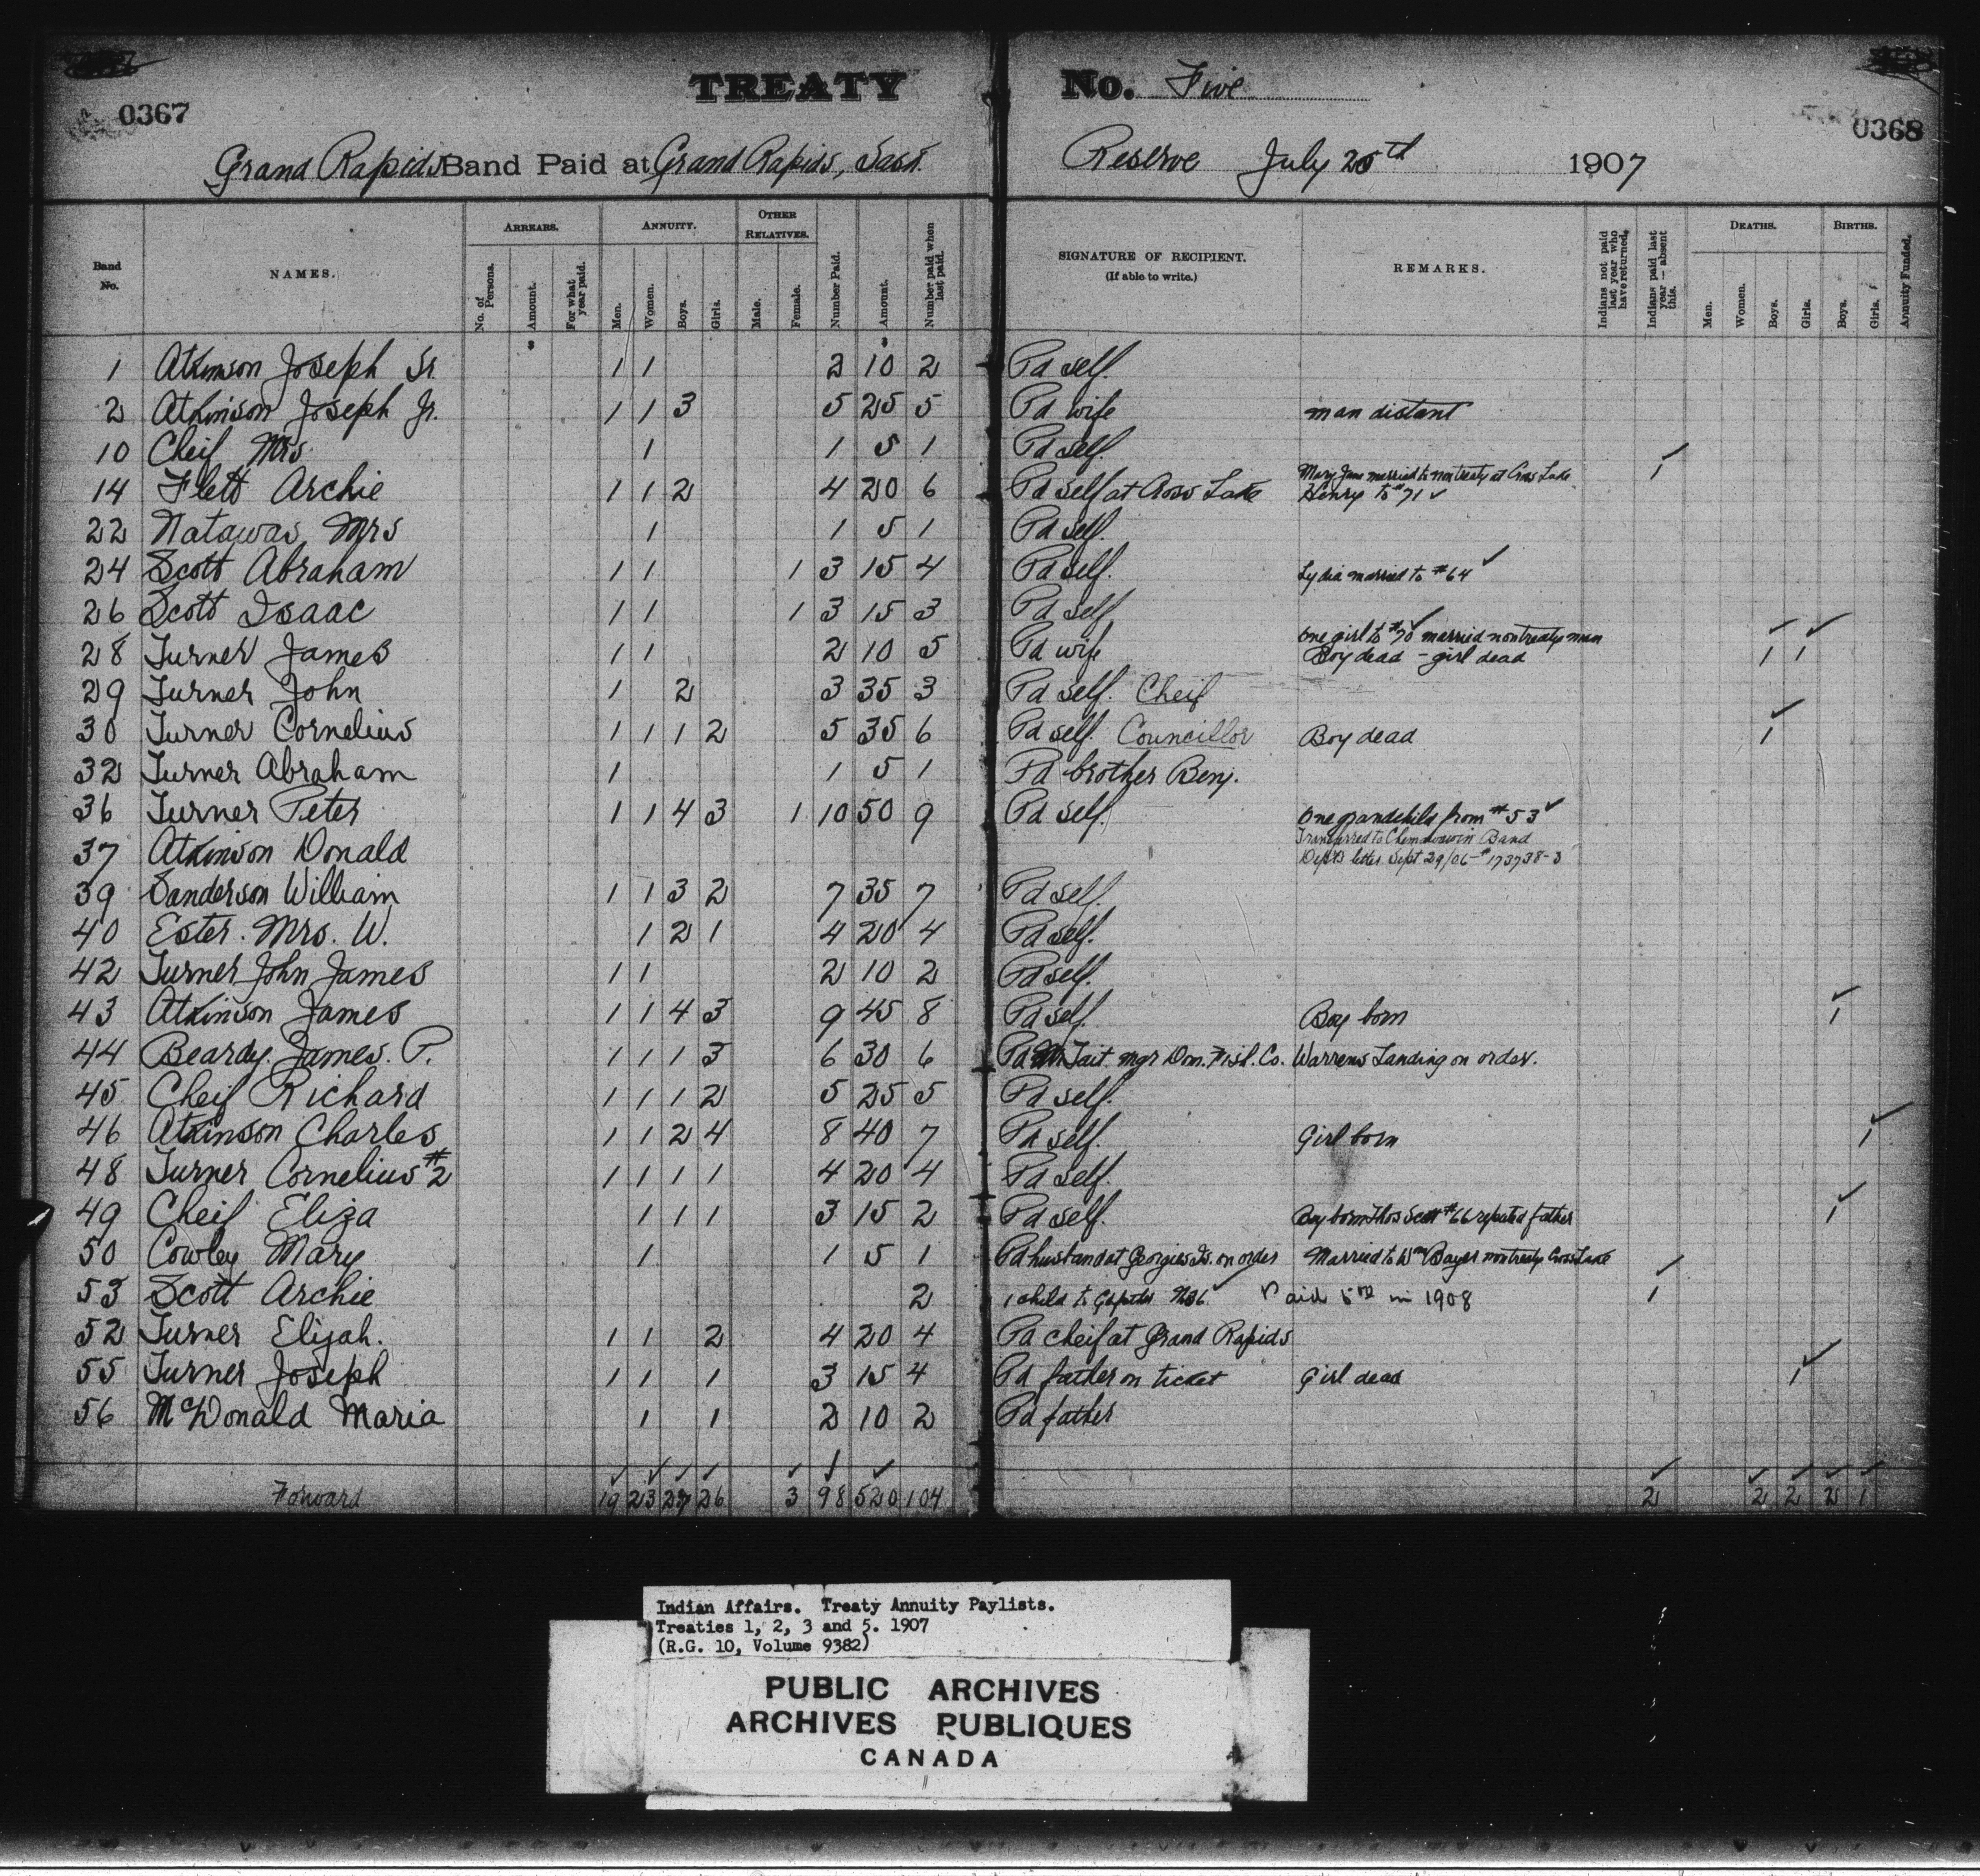 TREATY No. Five
0367 0368
Grand Rapids Band Paid at Grand Rapids, Sask. Reserve July 25th 1907
Band No. NAMES. ARREARS. No. of Persons. Amount. For what year paid. ANNUITY. Men. Women. Boys. Girls. OTHER RELATIVES. Male. Female. Number Paid. Amount. Number paid when last paid. SIGNATURE OF RECIPIENT. (If able to write.) REMARKS. Indians not paid last year who have returned. Indians paid last year — absent this. DEATHS. Men. Women. Boys. Girls. BIRTHS. Boys. Girls. Annuity Funded.
1 Atkinson Joseph Sr. 1 1 2 10 2 Pd self.
2 Atkinson Joseph Jr. 1 1 3 5 25 5 Pd wife man distant
10 Cheif Mrs 1 1 5 1 Pd self.
14 Flett Archie 1 1 2 4 20 6 Pd self at Cross Lake Mary Jane married to non treaty at Cross Lake Henry to #71 ✓ 1
22 Natawas Mrs 1 1 5 1 Pd self.
24 Scott Abraham 1 1 1 3 15 4 Pd self. Lydia married to #64 ✓
26 Scott Isaac 1 1 1 3 15 3 Pd self
28 Turner James 1 1 2 10 5 Pd wife One girl to #70 married nontreaty man Boy dead - girl dead 1 1
29 Turner John 1 2 3 35 3 Pd self. Cheif
30 Turner Cornelius 1 1 1 2 5 35 6 Pd self. Councillor Boy dead 1
32 Turner Abraham 1 1 5 1 Pd brother Benj.
36 Turner Peter 1 1 4 3 1 10 50 9 Pd self. One grandchild from #53 ✓
37 Atkinson Donald Transferred to Chemawawin Band Dept's letter Sept 29/06 - #173738-3
39 Sanderson William 1 1 3 2 7 35 7 Pd self.
40 Ester. Mrs. W. 1 2 1 4 20 4 Pd self.
42 Turner John James 1 1 2 10 2 Pd self.
43 Atkinson James 1 1 4 3 9 45 8 Pd self. Boy born 1
44 Beardy. James. P. 1 1 1 3 6 30 6 Pd Tait mgr Dom. Fish. Co. Warrens Landing on order.
45 Cheif Richard 1 1 1 2 5 25 5 Pd self.
46 Atkinson Charles 1 1 2 4 8 40 7 Pd self. Girl born 1
48 Turner Cornelius #2 1 1 1 1 4 20 4 Pd self.
49 Cheif Eliza 1 1 1 3 15 2 Pd self. Boy born Thos Scott #66 reputed father 1
50 Cowley Mary 1 1 5 1 Pd husband at Georgies Is. on order Married to Wm Bayer nontreaty Cross Lake
53 Scott Archie 2 1 child to No 36 ✓ Paid in 1908 1
52 Turner Elijah. 1 1 2 4 20 4 Pd cheif at Grand Rapids
55 Turner Joseph 1 1 1 3 15 4 Pd father on ticket Girl dead 1
56 McDonald Maria 1 1 2 10 2 Pd father
Forward 19 23 27 26 3 98 520 104 2 2 2 2 1
Indian Affairs. Treaty Annuity Paylists.
Treaties 1, 2, 3 and 5. 1907
(R.G. 10, Volume 9382)
PUBLIC ARCHIVES
ARCHIVES PUBLIQUES
CANADA